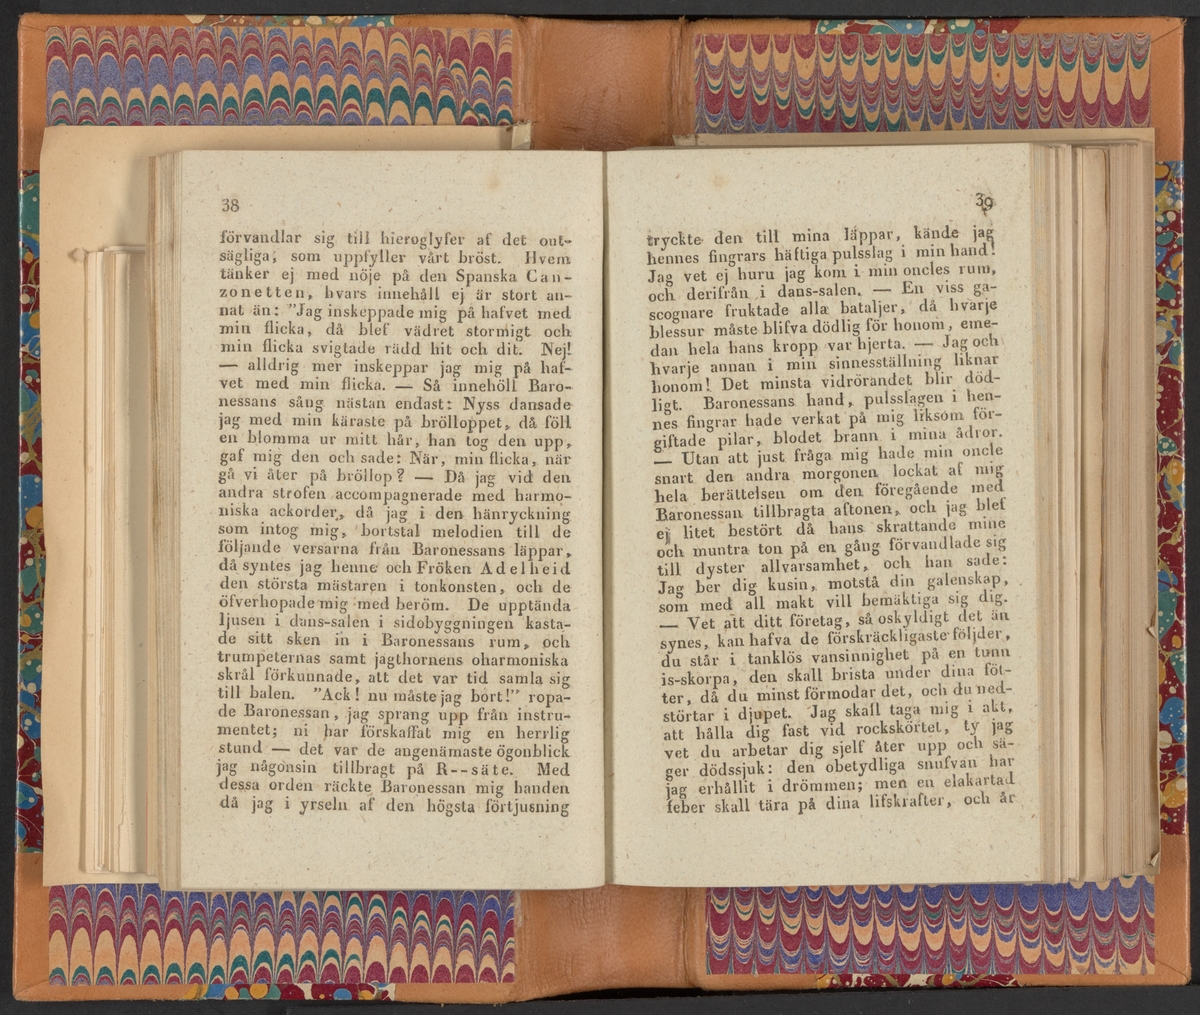 38
förvandlar sig till hieroglyfer af det out-
sägliga, som uppfyller vårt bröst. Hvem
tänker ej med nöje på den Spanska Can-
zonetten, hvars innehåll ej är stort an-
nat än: ”Jag inskeppade mig på hafvet med
min flicka, då blef vädret stormigt och
min flicka svigtade rädd hit och dit. Nej!
— alldrig mer inskeppar jag mig på haf-
vet med min flicka. — Så innehöll Baro-
nessans sång nästan endast: Nyss dansade
jag med min käraste på brölloppet, då föll
en blomma ur mitt hår, han tog den upp,
gaf mig den och sade: När, min flicka, när
gå vi åter på bröllop? — Då jag vid den
andra strofen accompagnerade med harmo-
niska ackorder, då jag i den hänryckning
som intog mig, bortstal melodien till de
följande versarna från Baronessans läppar,
då syntes jag henne och Fröken Adelheid
den största mästaren i tonkonsten, och de
öfverhopade mig med beröm. De upptända
ljusen i dans-salen i sidobyggningen kasta-
de sitt sken in i Baronessans rum, och
trumpeternas samt jagthornens oharmoniska
skrål förkunnade, att det var tid samla sig
till balen. ”Ack! nu måste jag bort!” ropa-
de Baronessan, jag sprang upp från instru-
mentet; ni har förskaffat mig en herrlig
stund — det var de angenämaste ögonblick
jag någonsin tillbragt på R--säte. Med
dessa orden räckte Baronessan mig handen
då jag i yrseln af den högsta förtjusning
39
tryckte den till mina läppar, kände jag
hennes fingrars häftiga pulsslag i min hand!
Jag vet ej huru jag kom i min oncles rum,
och derifrån i dans-salen. — En viss ga-
scognare fruktade alla bataljer, då hvarje
blessur måste blifva dödlig för honom, eme-
dan hela hans kropp var hjerta. — Jag och
hvarje annan i min sinnesställning liknar
honom! Det minsta vidrörandet blir död-
ligt. Baronessans hand, pulsslagen i hen-
nes fingrar hade verkat på mig liksom för-
giftade pilar, blodet brann i mina ådror.
— Utan att just fråga mig hade min oncle
snart den andra morgonen lockat af mig
hela berättelsen om den föregående med
Baronessan tillbragta aftonen, och jag blef
ej litet bestört då hans skrattande mine
och muntra ton på en gång förvandlade sig
till dyster allvarsamhet, och han sade:
Jag ber dig kusin, motstå din galenskap,
som med all makt vill bemäktiga sig dig.
— Vet att ditt företag, så oskyldigt det än
synes, kan hafva de förskräckligaste följder,
du står i tanklös vansinnighet på en tunn
is-skorpa, den skall brista under dina föt-
ter, då du minst förmodar det, och du ned-
störtar i djupet. Jag skall taga mig i akt,
att hålla dig fast vid rockskörtet, ty jag
vet du arbetar dig sjelf åter upp och sä-
ger dödssjuk: den obetydliga snufvan har
jag erhållit i drömmen; men en elakartad
feber skall tära på dina lifskrafter, och år